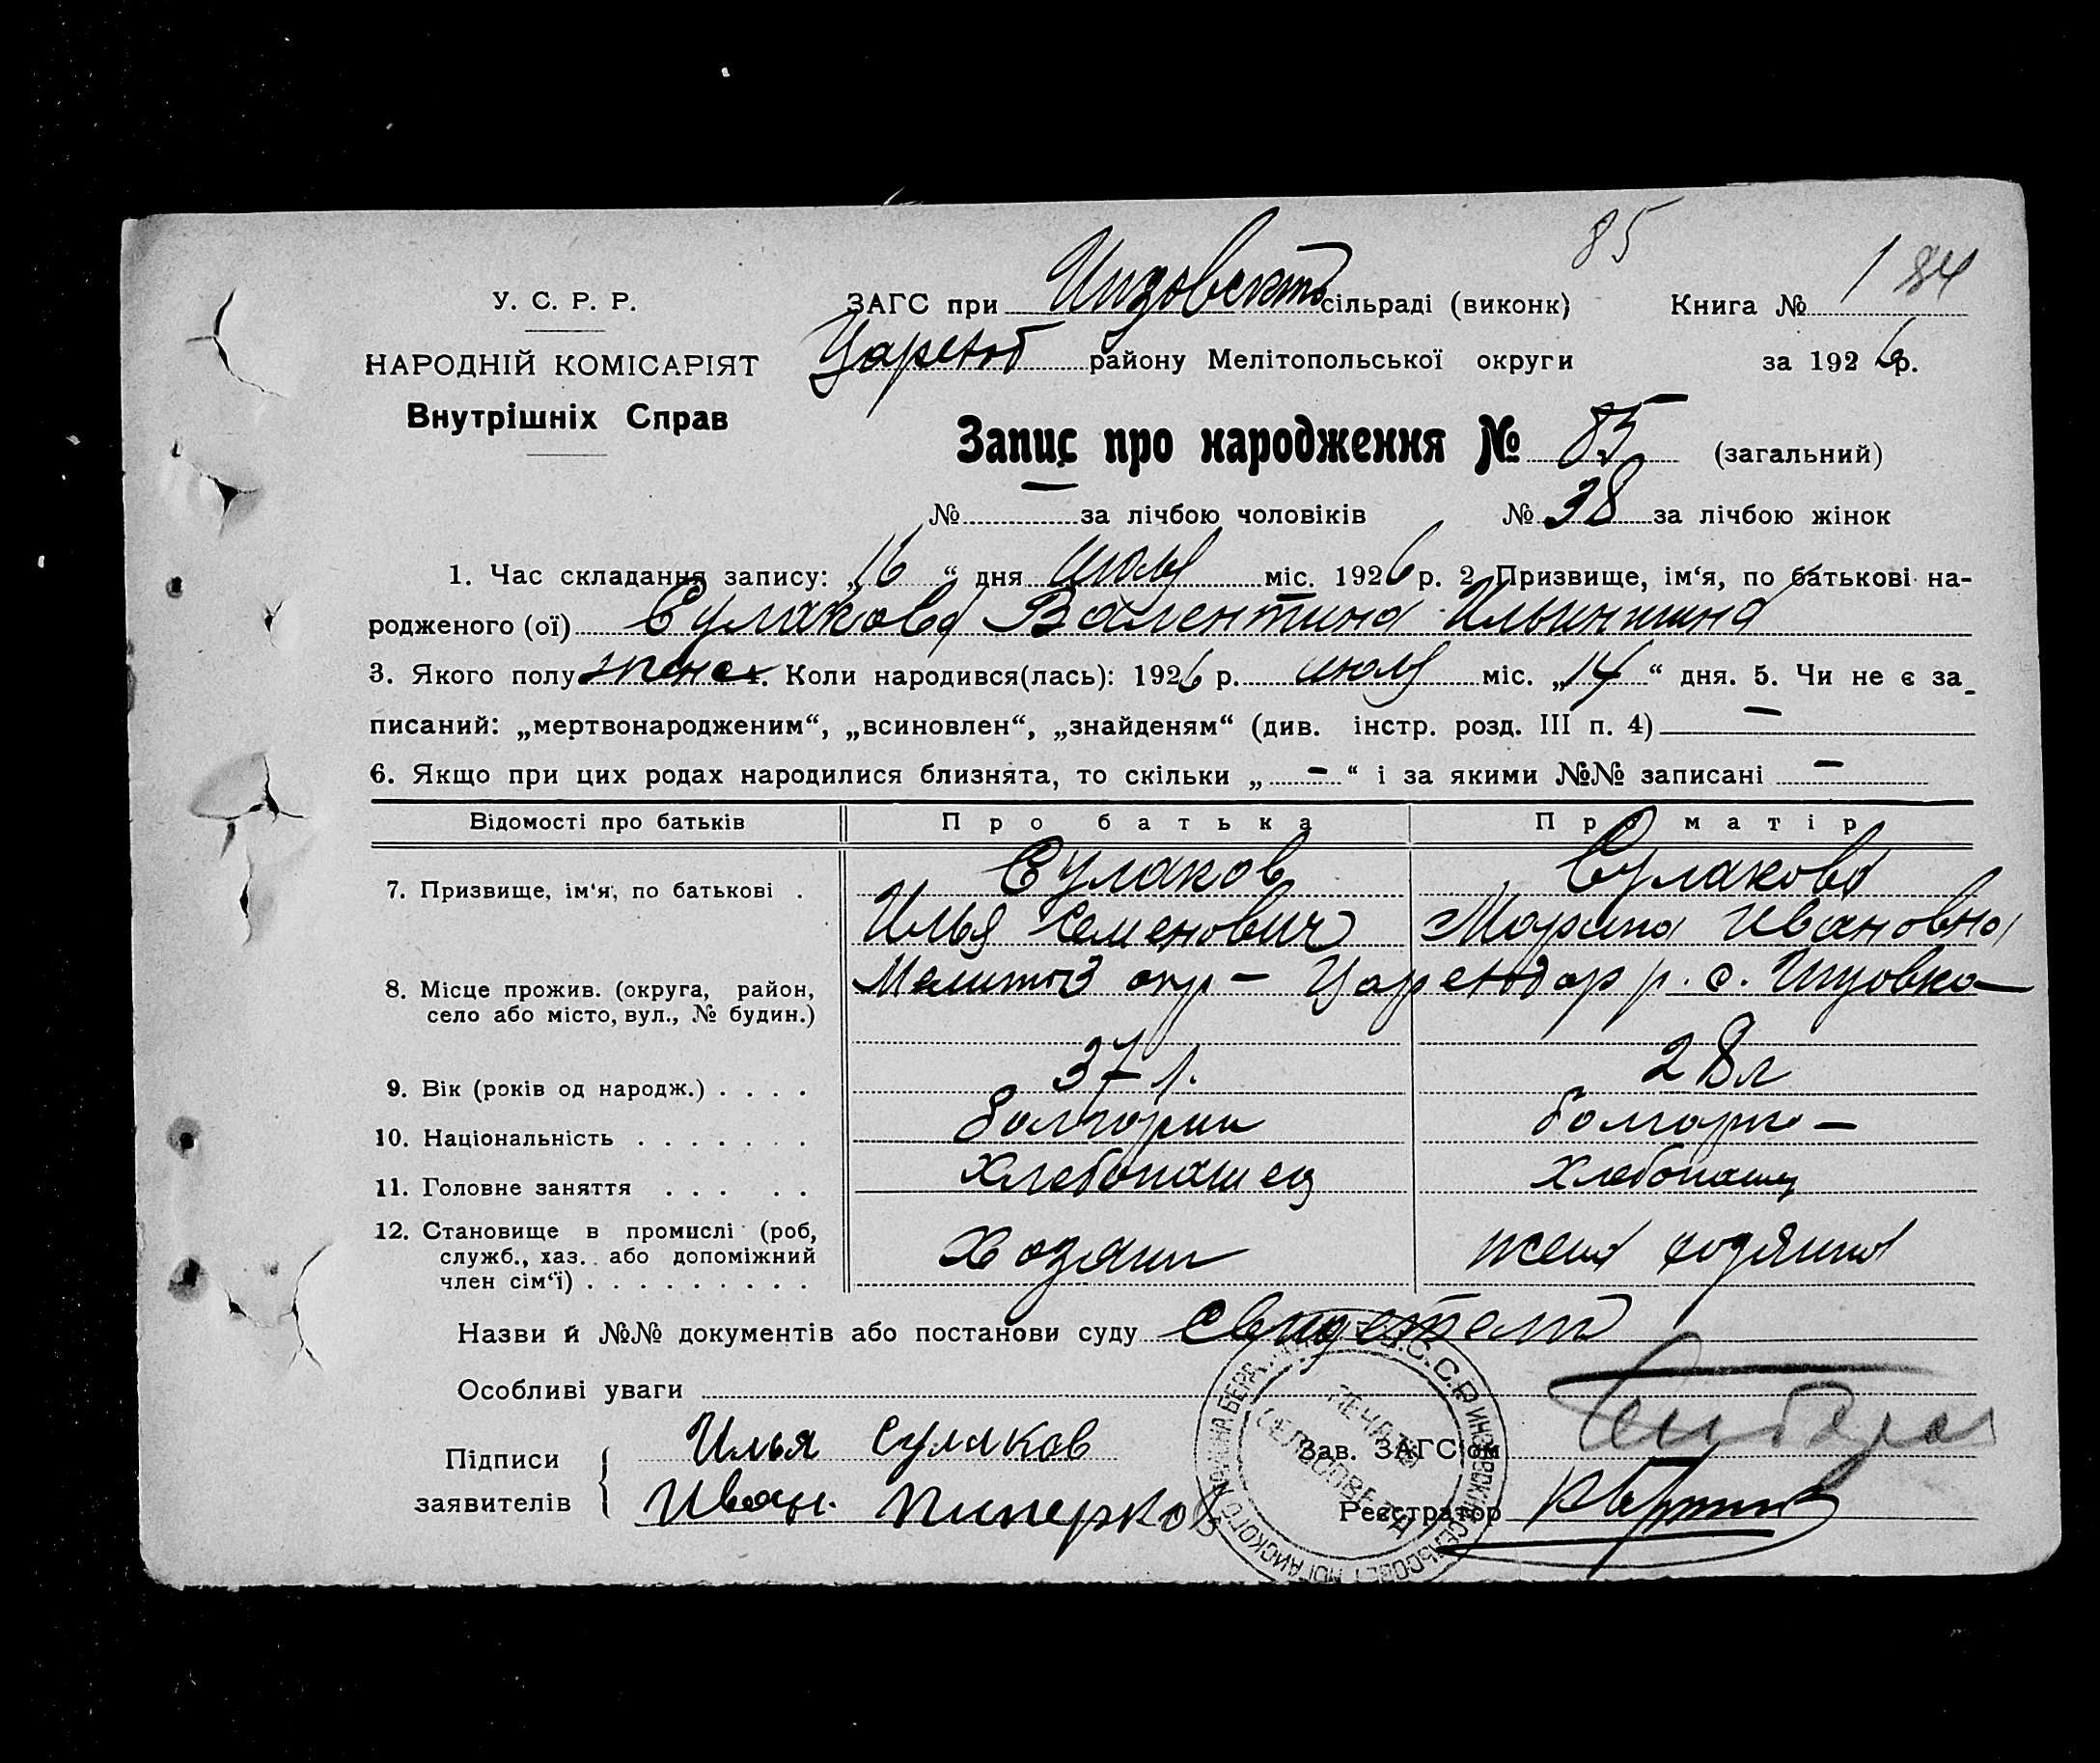 85
У. С. Р. Р.
ЗАГС при Инзовской сільраді (виконк) Книга № 1 84
НАРОДНІЙ КОМІСАРІЯТ
Царевод району Мелітопольської округи за 1926 р.
Внутрішніх Справ
Запис про народження № 85 (загальний)
№ — за лічбою чоловіків № 38 за лічбою жінок
1. Час складання запису: „16“ дня июля міс. 1926 р. 2 Призвище, ім‘я, по батькові на-
родженого (ої) Сулакова Валентина Ильинична
3. Якого полу женс 4. Коли народився(лась): 1926 р. июля міс. „14“ дня. 5. Чи не є за-
писаний: „мертвонародженим“, „всиновлен“, „знайденям“ (див. інстр. розд. III п. 4) —
6. Якщо при цих родах народилися близнята, то скільки „ – “ і за якими №№ записані –
Відомості про батьків Про батька Про матір
7. Призвище, ім‘я, по батькові . Сулаков Сулакова
Илья Семенович Марина Ивановна
8. Місце прожив. (округа, район, село або місто, вул., № будин.) Мелитоз окр – Цареводар р. с. Инзовка
9. Вік (років од народж.) . . . . 37 л. 28 л
10. Національність . . . . . . . болгарин болгарк –
11. Головне заняття . . . . . Хлебопашец Хлебопашец
12. Становище в промислі (роб, служб., хаз. або допоміжний член сім‘ї) . . . . . . . . . Хозяин жена хозяина
Назви й №№ документів або постанови суду свидетели
Особливі уваги
Підписи заявителів { Илья Сулаков
Иван. Пиперков
Зав. ЗАГС‘ом
Реєстратор
ПЕЧАТЬ
У.С.С.Р. ИНЗОВСКИЙ СЕЛЬСОВЕТ НОГАЙСКОГО РАЙОНА